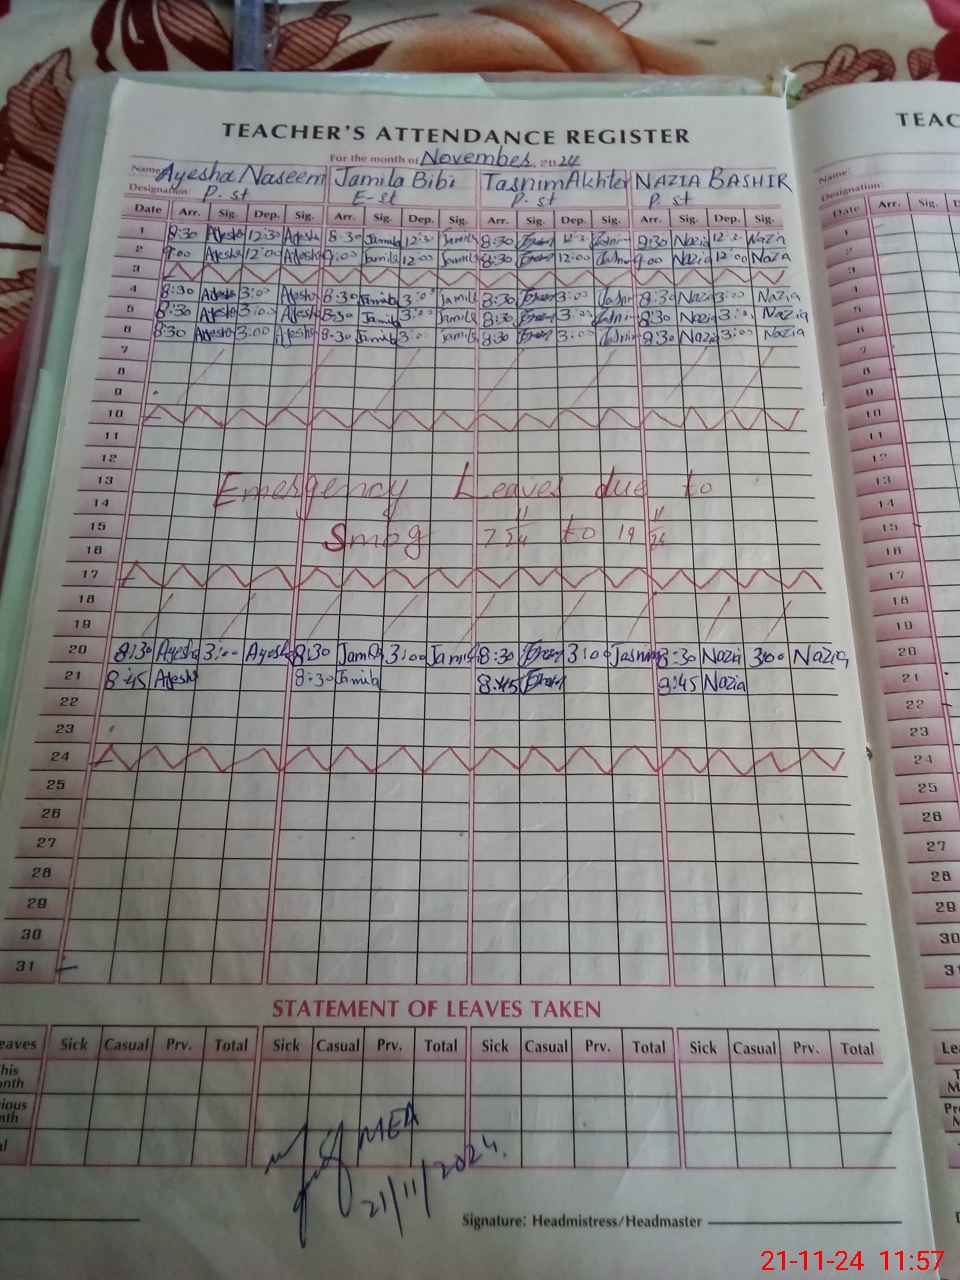 TEACHER'S ATTENDANCE REGISTER
For the month of November 2024
Name Ayesha Naseem Jamila Bibi Tasnim Akhter NAZIA BASHIR
Designation P.st E-st P.st P.st
Date Arr. Sig. Dep. Sig. Arr. Sig. Dep. Sig. Arr. Sig. Dep. Sig. Arr. Sig. Dep. Sig.
1 8:30 Ayesha 12:30 Ayesha 8:30 Jamila Jamila 8:30 8:30 Nazia Nazia
2 9:00 Ayesha 12:00 Ayesha 9:00 Jamila 12:00 Jamila 8:30 12:00 9:00 Nazia 12:00 Nazia
3
4 8:30 Ayesha 3:00 Ayesha 8:30 Jamila 3:00 Jamila 8:30 3:00 8:30 Nazia 3:00 Nazia
5 8:30 Ayesha 3:00 Ayesha 8:30 Jamila 3:00 Jamila 8:30 3:00 8:30 Nazia 3:00 Nazia
6 8:30 Ayesha 3:00 Ayesha 8:30 Jamila 3:00 Jamila 8:30 3:00 8:30 Nazia 3:00 Nazia
7
8
9
10
11
12
13 Emergency Leaves due to
14
15 Smog 7 11/24 to 19 11/24
16
17
18
19
20 8:30 Ayesha 3:00 Ayesha 8:30 Jamila 3:00 Jamila 8:30 3:00 Tasnim 8:30 Nazia 3:00 Nazia
21 8:45 Ayesha 8:30 Jamila 8:45 8:45 Nazia
22
23
24
25
26
27
28
29
30
31
STATEMENT OF LEAVES TAKEN
eaves Sick Casual Prv. Total Sick Casual Prv. Total Sick Casual Prv. Total Sick Casual Prv. Total
his
onth
ious
nth
al
MEA
21/11/2024.
Signature: Headmistress/Headmaster
TEAC
Name:
Designation:
Date Arr. Sig. D
1
2
3
4
5
6
7
8
9
10
11
12
13
14
15
16
17
18
19
20
21
22
23
24
25
26
27
28
29
30
31
Lea
T
M
Pre
M
21-11-24 11:57